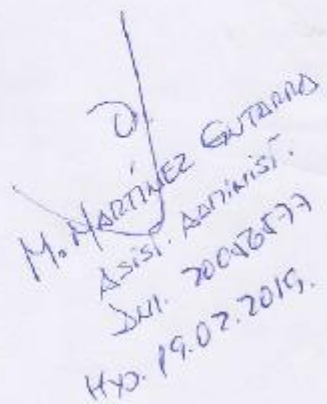 M. MARTÍNEZ GUTARRA
ASIST. ADMINIST.
DNI. 20056577
HYO. 19.02.2019.